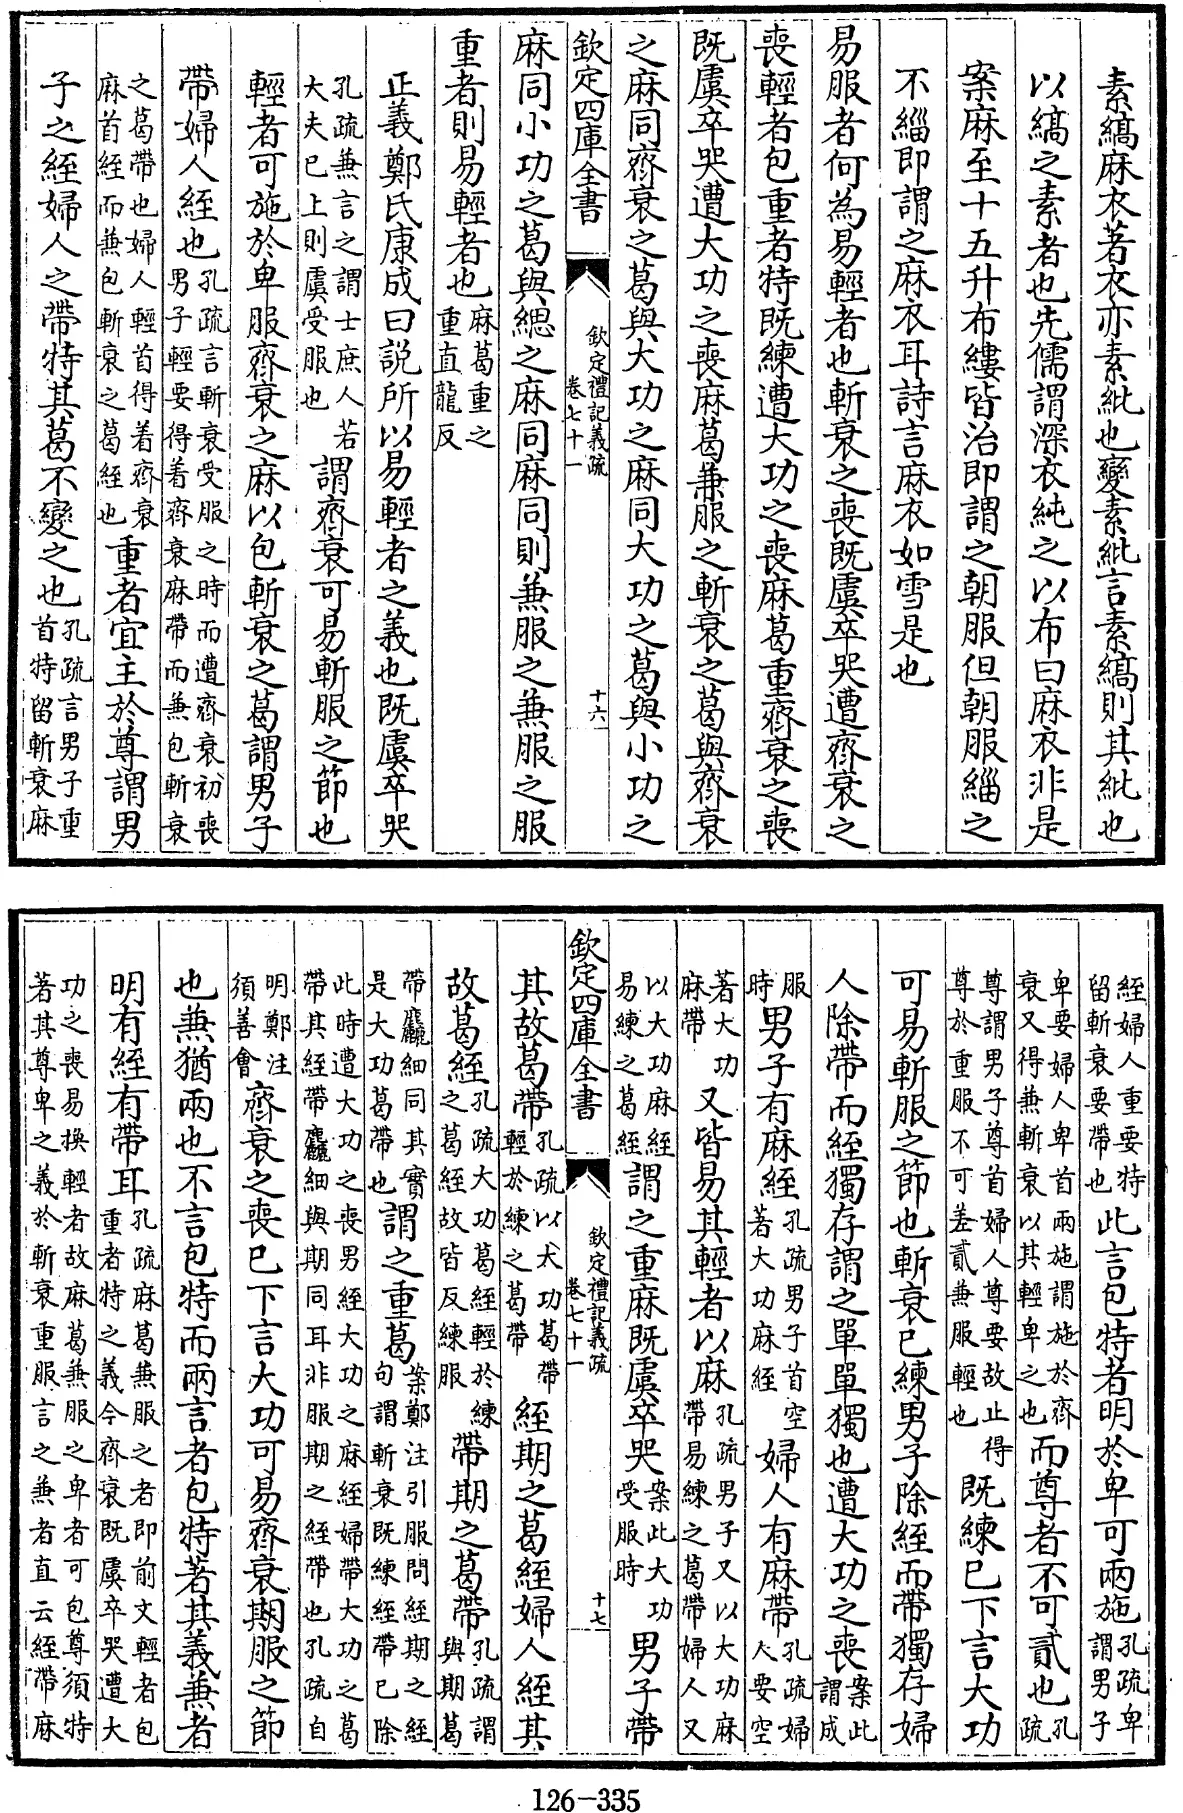 素縞麻衣著衣亦素紕也變素紕言素縞則其紕也
以縞之素者也先儒謂深衣純之以布曰麻衣非是
案麻至十五升布縷皆治即謂之朝服但朝服緇之
不緇即謂之麻衣耳詩言麻衣如雪是也
易服者何為易輕者也斬衰之喪既虞卒哭遭齊衰之
喪輕者包重者特既練遭大功之喪麻葛重齊衰之喪
既虞卒哭遭大功之喪麻葛兼服之斬衰之葛與齊衰
之麻同齊衰之葛與大功之麻同大功之葛與小功之
欽定四庫全書
欽定禮記義疏
卷七十一
十六
麻同小功之葛與緦之麻同麻同則兼服之兼服之服
重者則易輕者也麻葛重之
重直龍反
正義鄭氏康成曰說所以易輕者之義也既虞卒哭
孔疏兼言之謂士庶人若
大夫已上則虞受服也
謂齊衰可易斬服之節也
輕者可施於卑服齊衰之麻以包斬衰之葛謂男子
帶婦人絰也
孔疏言斬衰受服之時而遭齊衰初喪
男子輕要得着齊衰麻帶而兼包斬衰
之葛帶也婦人輕首得着齊衰
麻首絰而兼包斬衰之葛絰也
重者宜主於尊謂男
子之絰婦人之帶特其葛不變之也
孔疏言男子重
首特留斬衰麻
絰婦人重要特
留斬衰要帶也
此言包特者明於卑可兩施
孔疏卑
謂男子
卑要婦人卑首兩施謂施於齊
衰又得兼斬衰以其輕卑之也
而尊者不可貳也
孔
疏
尊謂男子尊首婦人尊要故止得
尊於重服不可差貳兼服輕也
既練已下言大功
可易斬服之節也斬衰已練男子除絰而帶獨存婦
人除帶而絰獨存謂之單單獨也遭大功之喪
案此
謂成
服
時
男子有麻絰
孔疏男子首空
著大功麻絰
婦人有麻帶
孔疏婦
人要空
著大功
麻帶
又皆易其輕者以麻
孔疏男子又以大功麻
帶易練之葛帶婦人又
以大功麻絰
易練之葛絰
謂之重麻既虞卒哭
案此大功
受服時
男子帶
欽定四庫全書
欽定禮記義疏
卷七十一
十七
其故葛帶
孔疏以大功葛帶
輕於練之葛帶
絰期之葛絰婦人絰其
故葛絰
孔疏大功葛絰輕於練
之葛絰故皆反練服
帶期之葛帶
孔疏謂
與期葛
帶麤細同其實
是大功葛帶也
謂之重葛
案鄭注引服問絰期之絰
句謂斬衰既練絰帶已除
此時遭大功之喪男絰大功之麻絰婦帶大功之葛
帶其絰帶麤細與期同耳非服期之絰帶也孔疏自
明鄭注
須善會
齊衰之喪已下言大功可易齊衰期服之節
也兼猶兩也不言包特而兩言者包特著其義兼者
明有絰有帶耳
孔疏麻葛兼服之者即前文輕者包
重者特之義今齊衰既虞卒哭遭大
功之喪易換輕者故麻葛兼服之卑者可包尊須特
著其尊卑之義於斬衰重服言之兼者直云絰帶麻
126-335